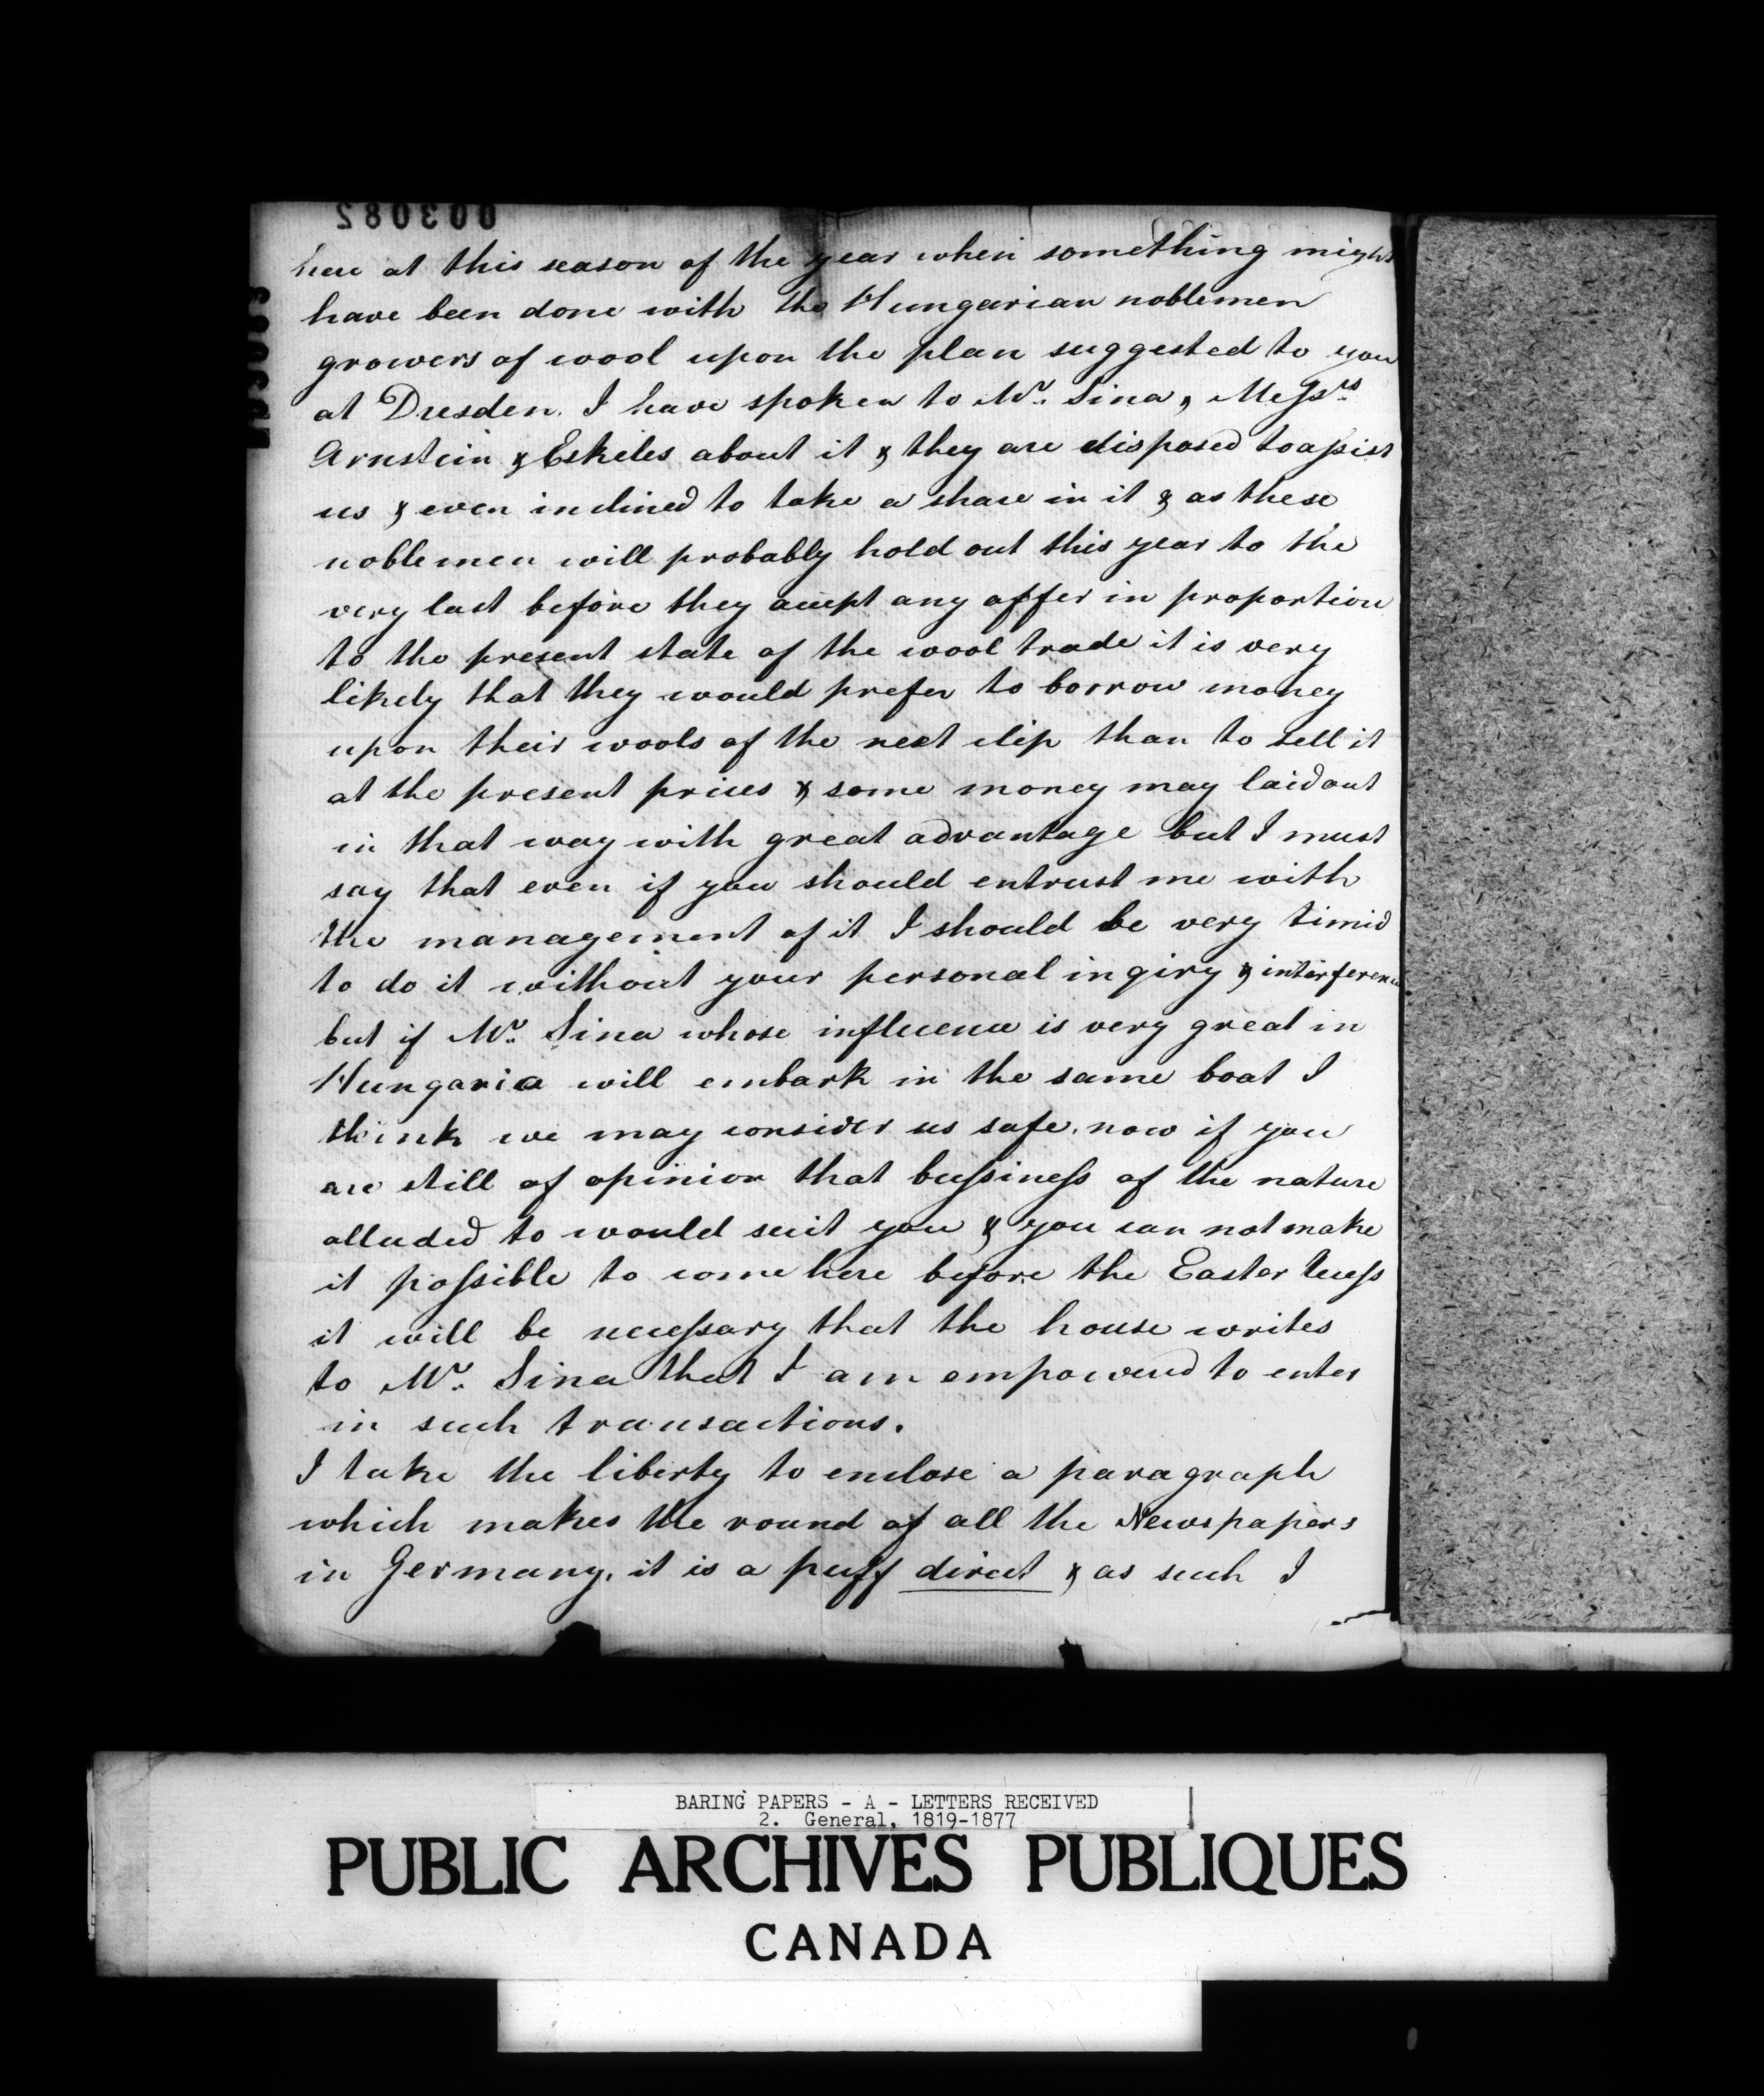 003082
here at this season of the year when something might
have been done with the Hungarian noblemen
growers of wool upon the plan suggested to you
at Dresden. I have spoken to Mr. Sina, Messrs
Arnstein & Eskeles about it & they are disposed to assist
us & even inclined to take a share in it & as these
noblemen will probably hold out this year to the
very last before they accept any offer in proportion
to the present state of the wool trade it is very
likely that they would prefer to borrow money
upon their wools of the next clip than to sell it
at the present prices & some money may laid out
in that way with great advantage but I must
say that even if you should entrust me with
the management of it I should be very timid
to do it without your personal inqiry & interference
but if Mr. Sina whose influence is very great in
Hungaria will embark in the same boat I
think we may consider us safe. now if you
are still of opinion that bussiness of the nature
alluded to would suit you & you can not make
it possible to come here before the Easter
it will be necessary that the house writes
to Mr. Sina that I am empowered to enter
in such transactions.
I take the liberty to enclose a paragraph
which makes the round of all the Newspapers
in Germany, it is a puff direct & as such I
BARING PAPERS - A - LETTERS RECEIVED
2. General, 1819-1877
PUBLIC ARCHIVES PUBLIQUES
CANADA